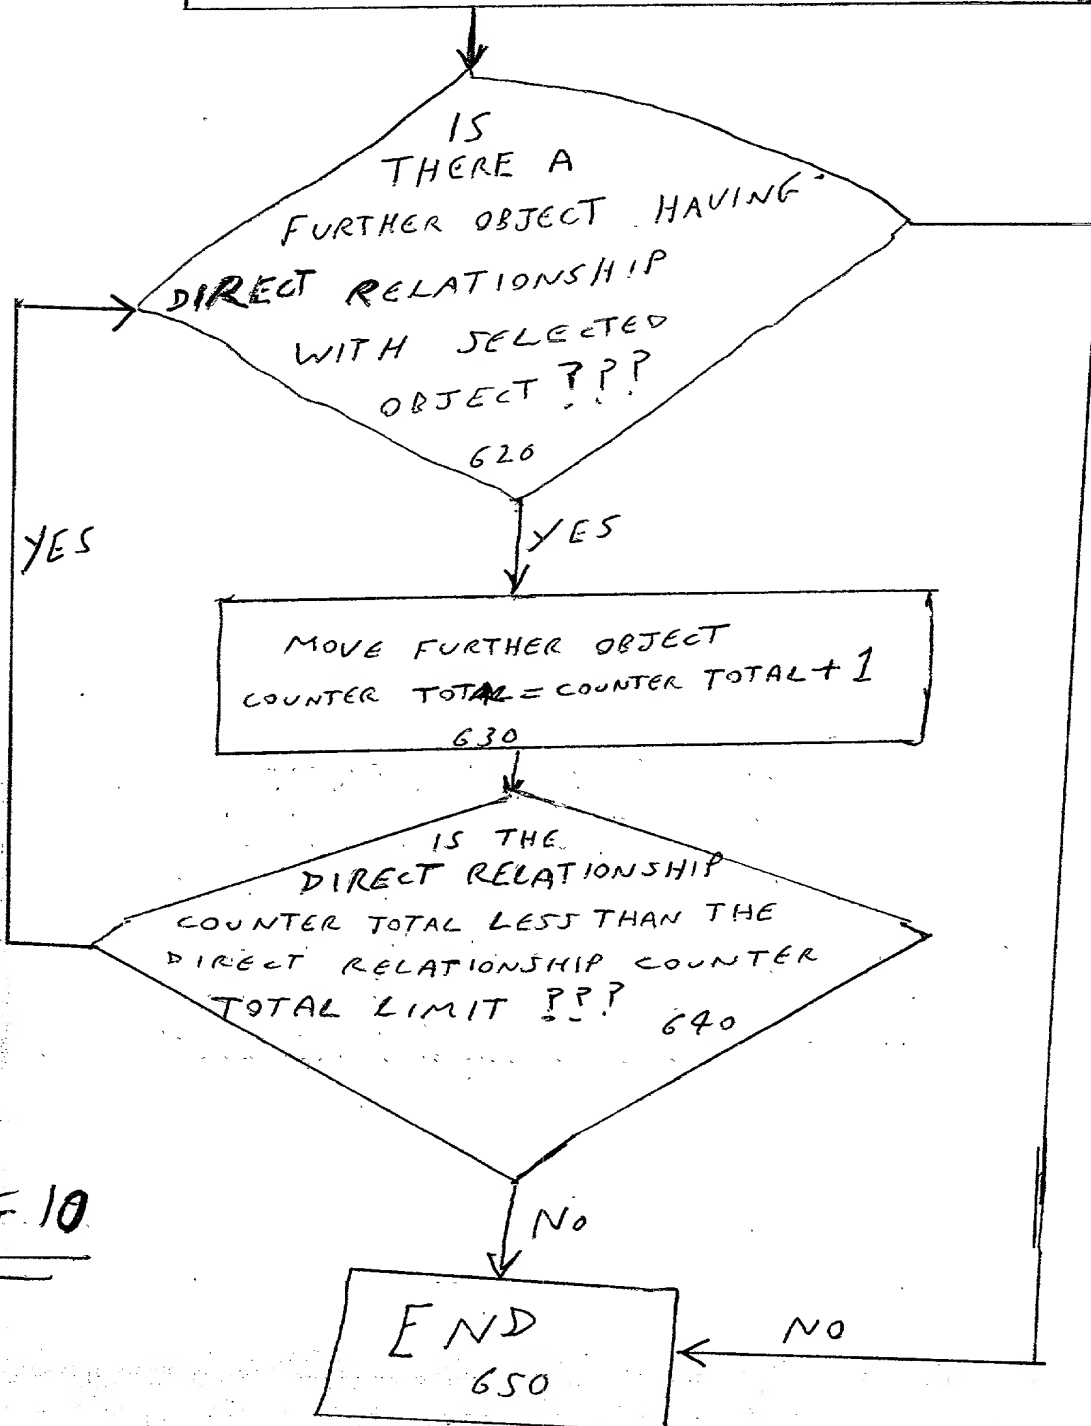 IS
THERE A
FURTHER OBJECT HAVING
DIRECT RELATIONSHIP
WITH SELECTED
OBJECT ???
620
YES
YES
MOVE FURTHER OBJECT
COUNTER TOTAL = COUNTER TOTAL + 1
630
IS THE
DIRECT RELATIONSHIP
COUNTER TOTAL LESS THAN THE
DIRECT RELATIONSHIP COUNTER
TOTAL LIMIT ???
640
10
NO
END
650
NO